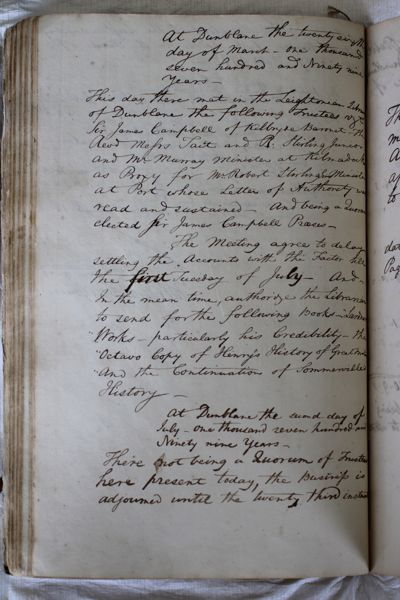 At Dunblane the twenty sixth
day of March - one thousand
seven hundred and Ninety nine
Years -
This day there met in the Leightonian
of Dunblane the following Trustees vizt
Sir James Campbell of Kilbryde Baronet
Revd Messrs Tait and R. Stirling Junior
and Mr Murray minister at Kilmadock
as Proxy for Mr Robert Stirling Minister
at Port whose Letter of Authority was
read and sustained - And being a Quorum
elected Sir James Campbell Preses -
The Meeting agree to delay
settling the Accounts with the Factor till
the first Tuesday of July - And -
In the mean time, authorize the Librarian
to send for the following Books -
"Works - particularly his Credibility - the
"Octavo Copy of Henry's History of
"And the Continuations of Sommervilles
History -
At Dunblane the second day of
July - one thousand seven hundred and
Ninety nine Years -
There not being a Quorum of Trustees
here present today, the Business is
adjourned until the twenty third instant